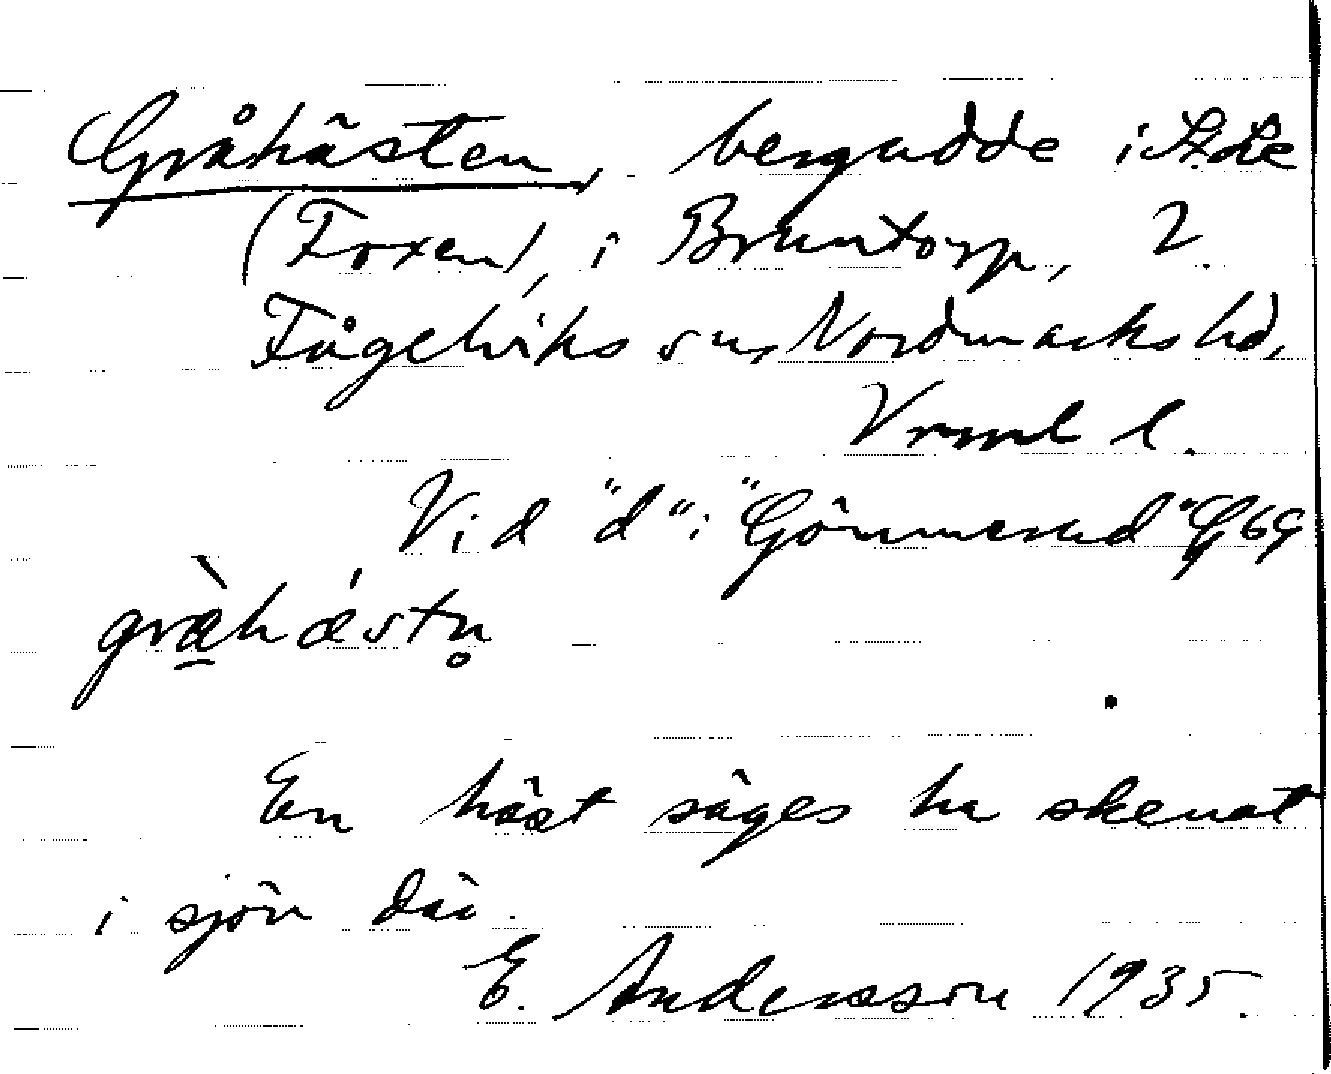 Gråhästen, bergudde i St. Le
(Foxen), i Bruntorp, 2.
Fågelviks sn, Nordmarks hd,
Vrml l.
Vid "d" i "Gömmerud" 69
græhæ´stn̥
En häst säges ha skenat
i sjön där.
E. Andersson 1935.